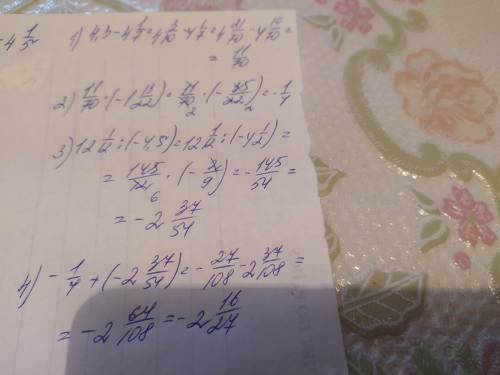 -4 1/5
1) 4,3 - 4 1/7 = 4 3/10 - 4 1/7 = 4 21/70 - 4 10/70 =
= 11/70
2) 11/70 · (-1 13/22) = 11/70 · (-35/22) = -1/4
3) 12 1/12 : (-4,5) = 12 1/12 : (-4 1/2) =
= 145/12 · (-2/9) = -145/54 =
= -2 37/54
4) -1/4 + (-2 37/54) = -27/108 - 2 37/108 =
= -2 64/108 = -2 16/27